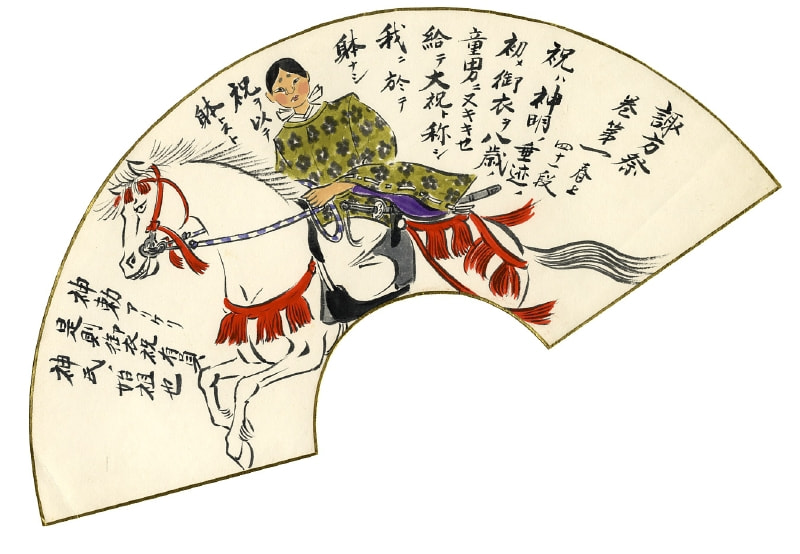 諏方祭
巻第一 春上
四十段
祝ハ神明ノ垂迹ノ
初メ御衣ヲ八歳
童男ニヌキキせ
給テ大祝ト称シ
我ニ於テ
躰ナシ
祝ヲ以テ
躰トスト
神勅アリケリ
是則御衣祝有員
神氏ノ始祖也